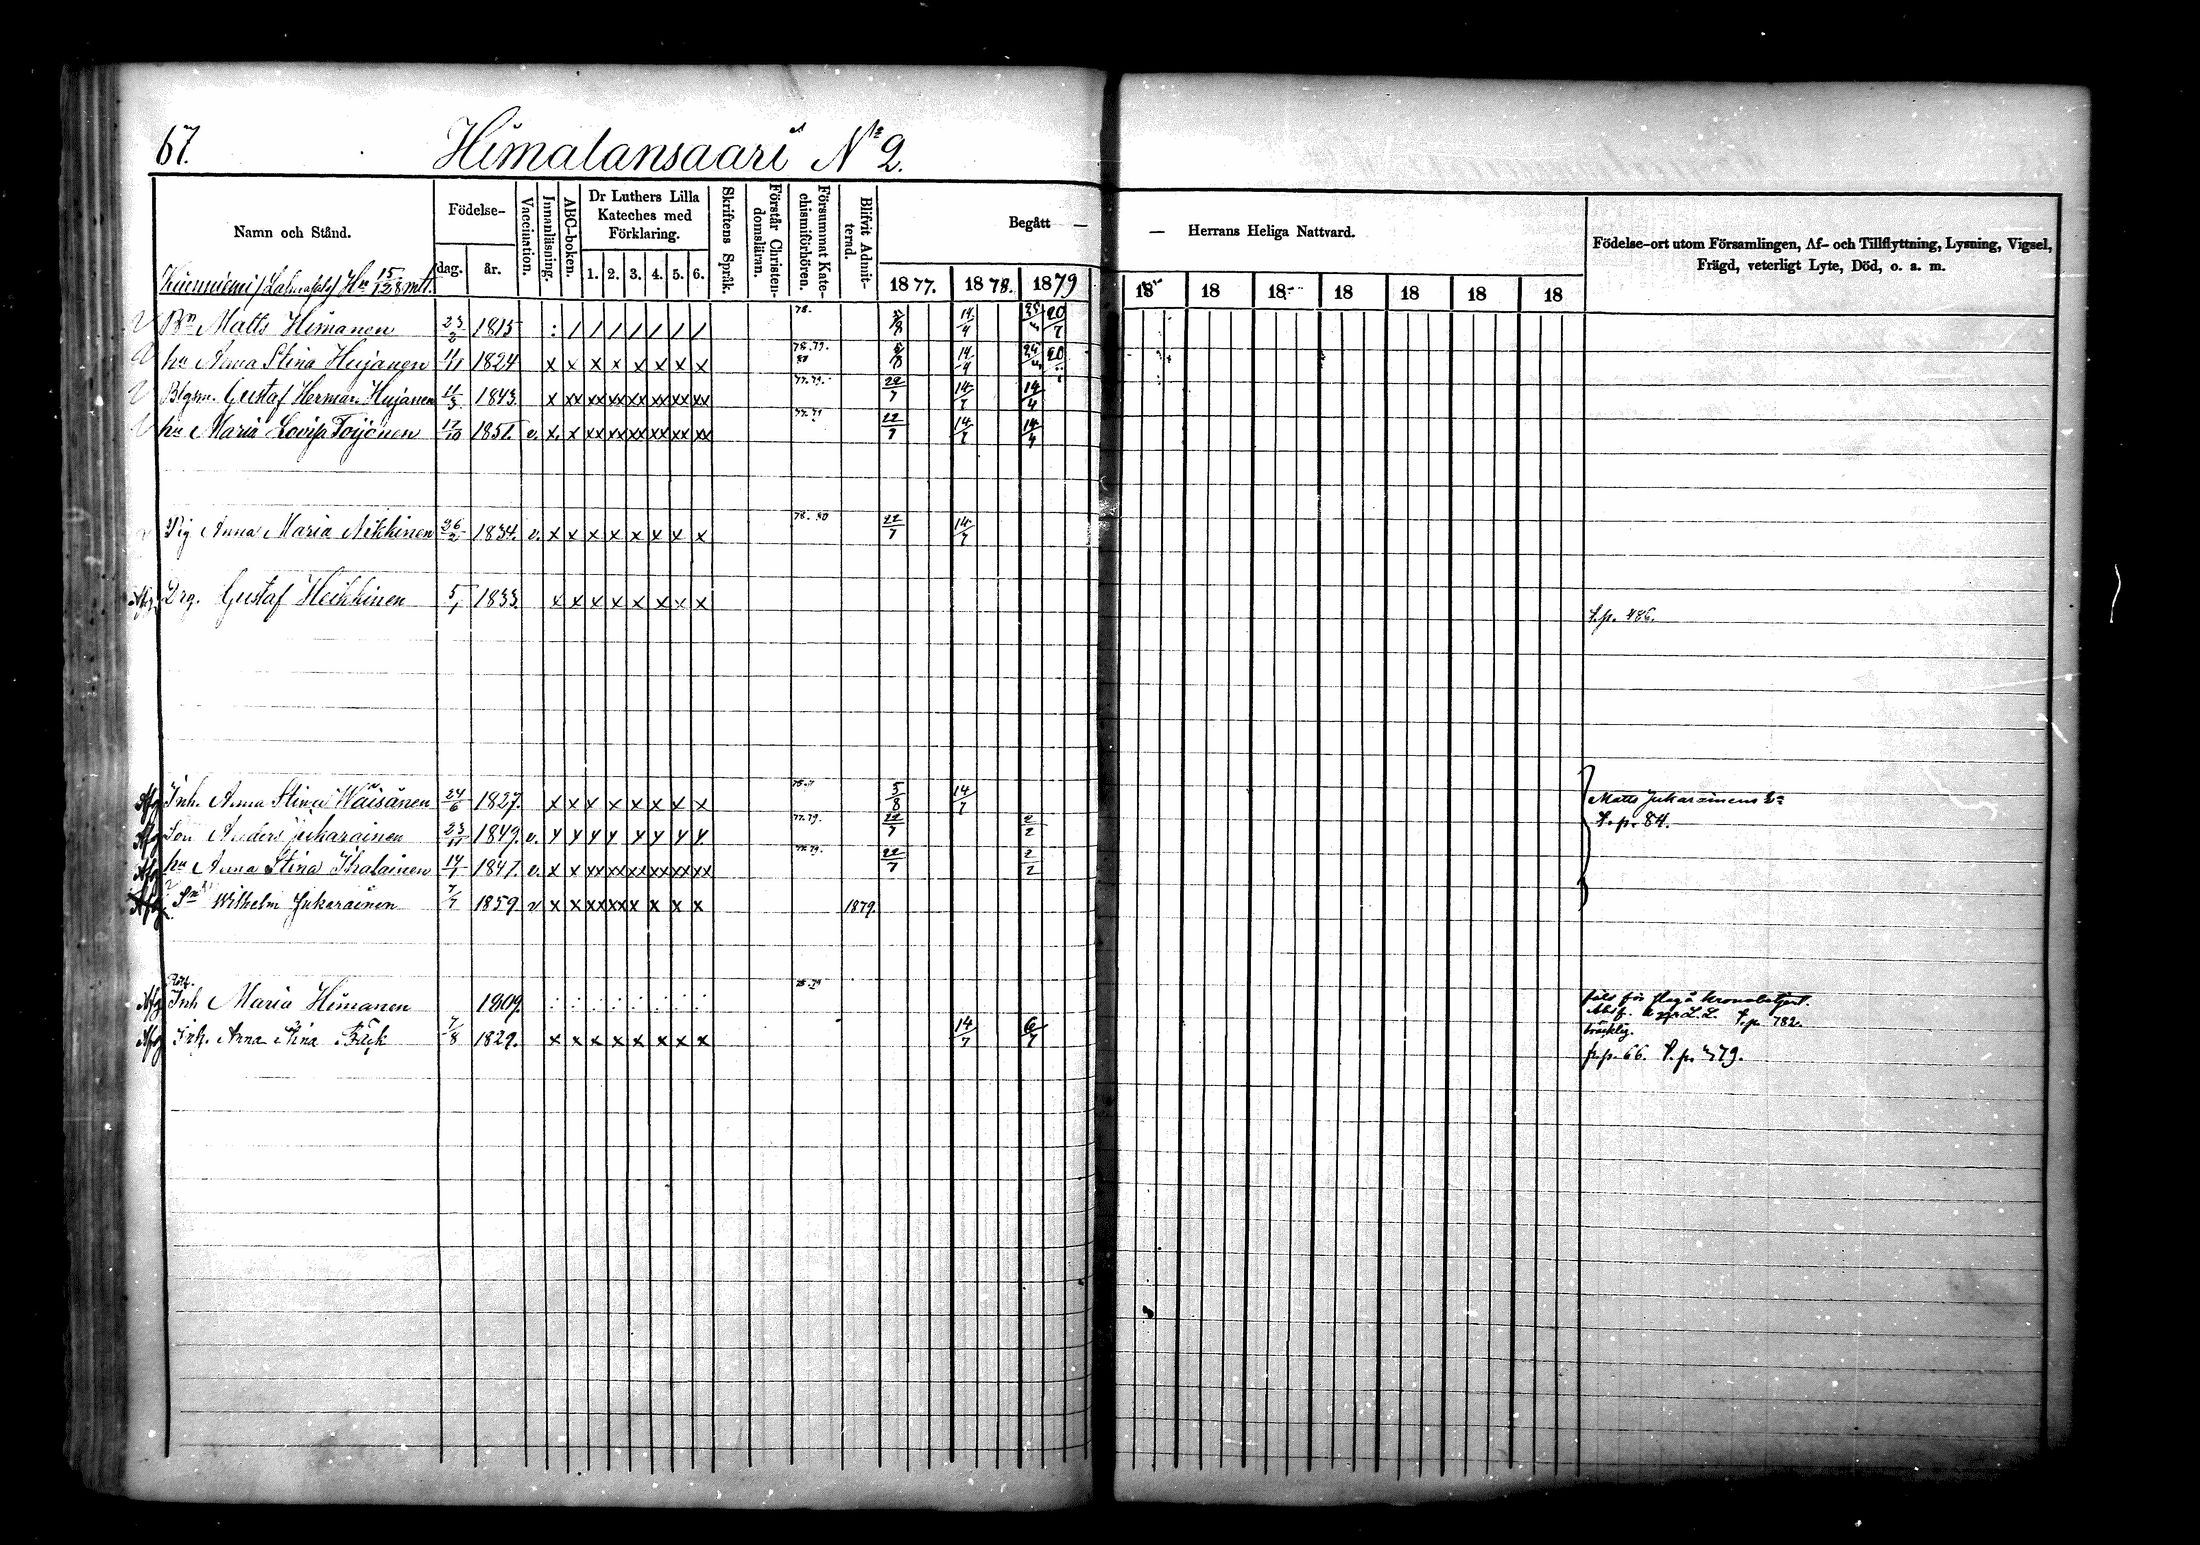 67. Himalansaari No 2.
Namn och Stånd. Födelse- dag. år. Vaccination. Innanläsning. ABC-boken. Dr Luthers Lilla Kateches med Förklaring. 1. 2. 3. 4. 5. 6. Skriftens Språk. Förstår Christendomsläran. Försummat Katechismiförhören. Blifvit Admitterad. Begått — — Herrans Heliga Nattvard. Födelse-ort utom Församlingen, Af- och Tillflyttning, Lysning, Vigsel, Frägd, veterligt Lyte, Död, o. a. m.
1877. 1878. 1879 18 18 18 18 18 18 18
15/128 mtl.
Bn Matts Himanen 1815 : / / / / / / / 78. 14/4 20/7
hu Anna Stina Heijanen 1824 x x x x x x x x 78.79. 14/4
Gustaf Herman Heijanen 1843. x xx xx xx xx xx xx xx 77.79. 22/7 14/7 14/4
hu Maria Lovisa Toijonen 17/10 1851. v. x. x xx xx xx xx xx xx 77.79 22/7 14/7 14/4
Pig Anna Maria Nikkinen 26/2 1834. v. x x x x x x x x 78. 80 22/7 14/7
Afg. Drg. Gustaf Heikkinen 5/1 1833. x x x x x x x x T.p. 486.
Afg Inh. Anna Stina Wäisänen 24/6 1827. x x x x x x x x 5/8 14/7 Matts Jukarainens
Afg Son Anders Jukarainen 23/11 1849. v. y y y y y y y y. 77.79. 22/7 2/2 T.p. 84.
Afg hu Anna Stina Ihalainen 1847. v. x x xx xx xx xx xx xx 77.79. 22/7 2/2
Afg Sn Wilhelm Jukarainen 7/7 1859 v x x xx xx x x x x 1879.
Afg Inh Maria Himanen 1809. : : : : : : : : T.p. 782.
Afg Inh. Anna Stina Bäck 7/8 1829. x x x x x x x x 14/7 6/7 bräcklig.
fr.p. 66. T.p. 779.